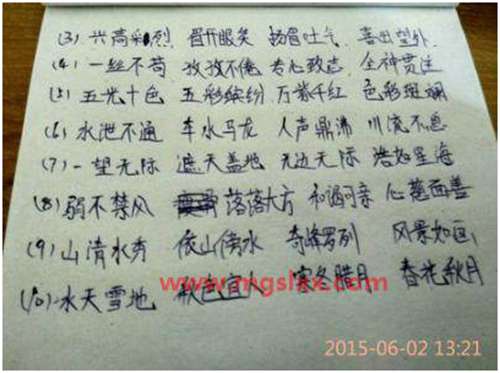 (3) 兴高彩烈 眉开眼笑 扬眉吐气 喜出望外
(4) 一丝不苟 孜孜不倦 专心致志 全神贯注
(5) 五光十色 五彩缤纷 万紫千红 色彩斑斓
(6) 水泄不通 车水马龙 人声鼎沸 川流不息
(7) 一望无际 遮天盖地 无边无际 浩如星海
(8) 弱不禁风 落落大方 和谒可亲 心慈面善
(9) 山清水秀 依山傍水 奇峰罗列 风景如画
(10) 水天雪地 秋色宜人 寒冬腊月 春花秋月
www.mgslax.com
2015-06-02 13:21